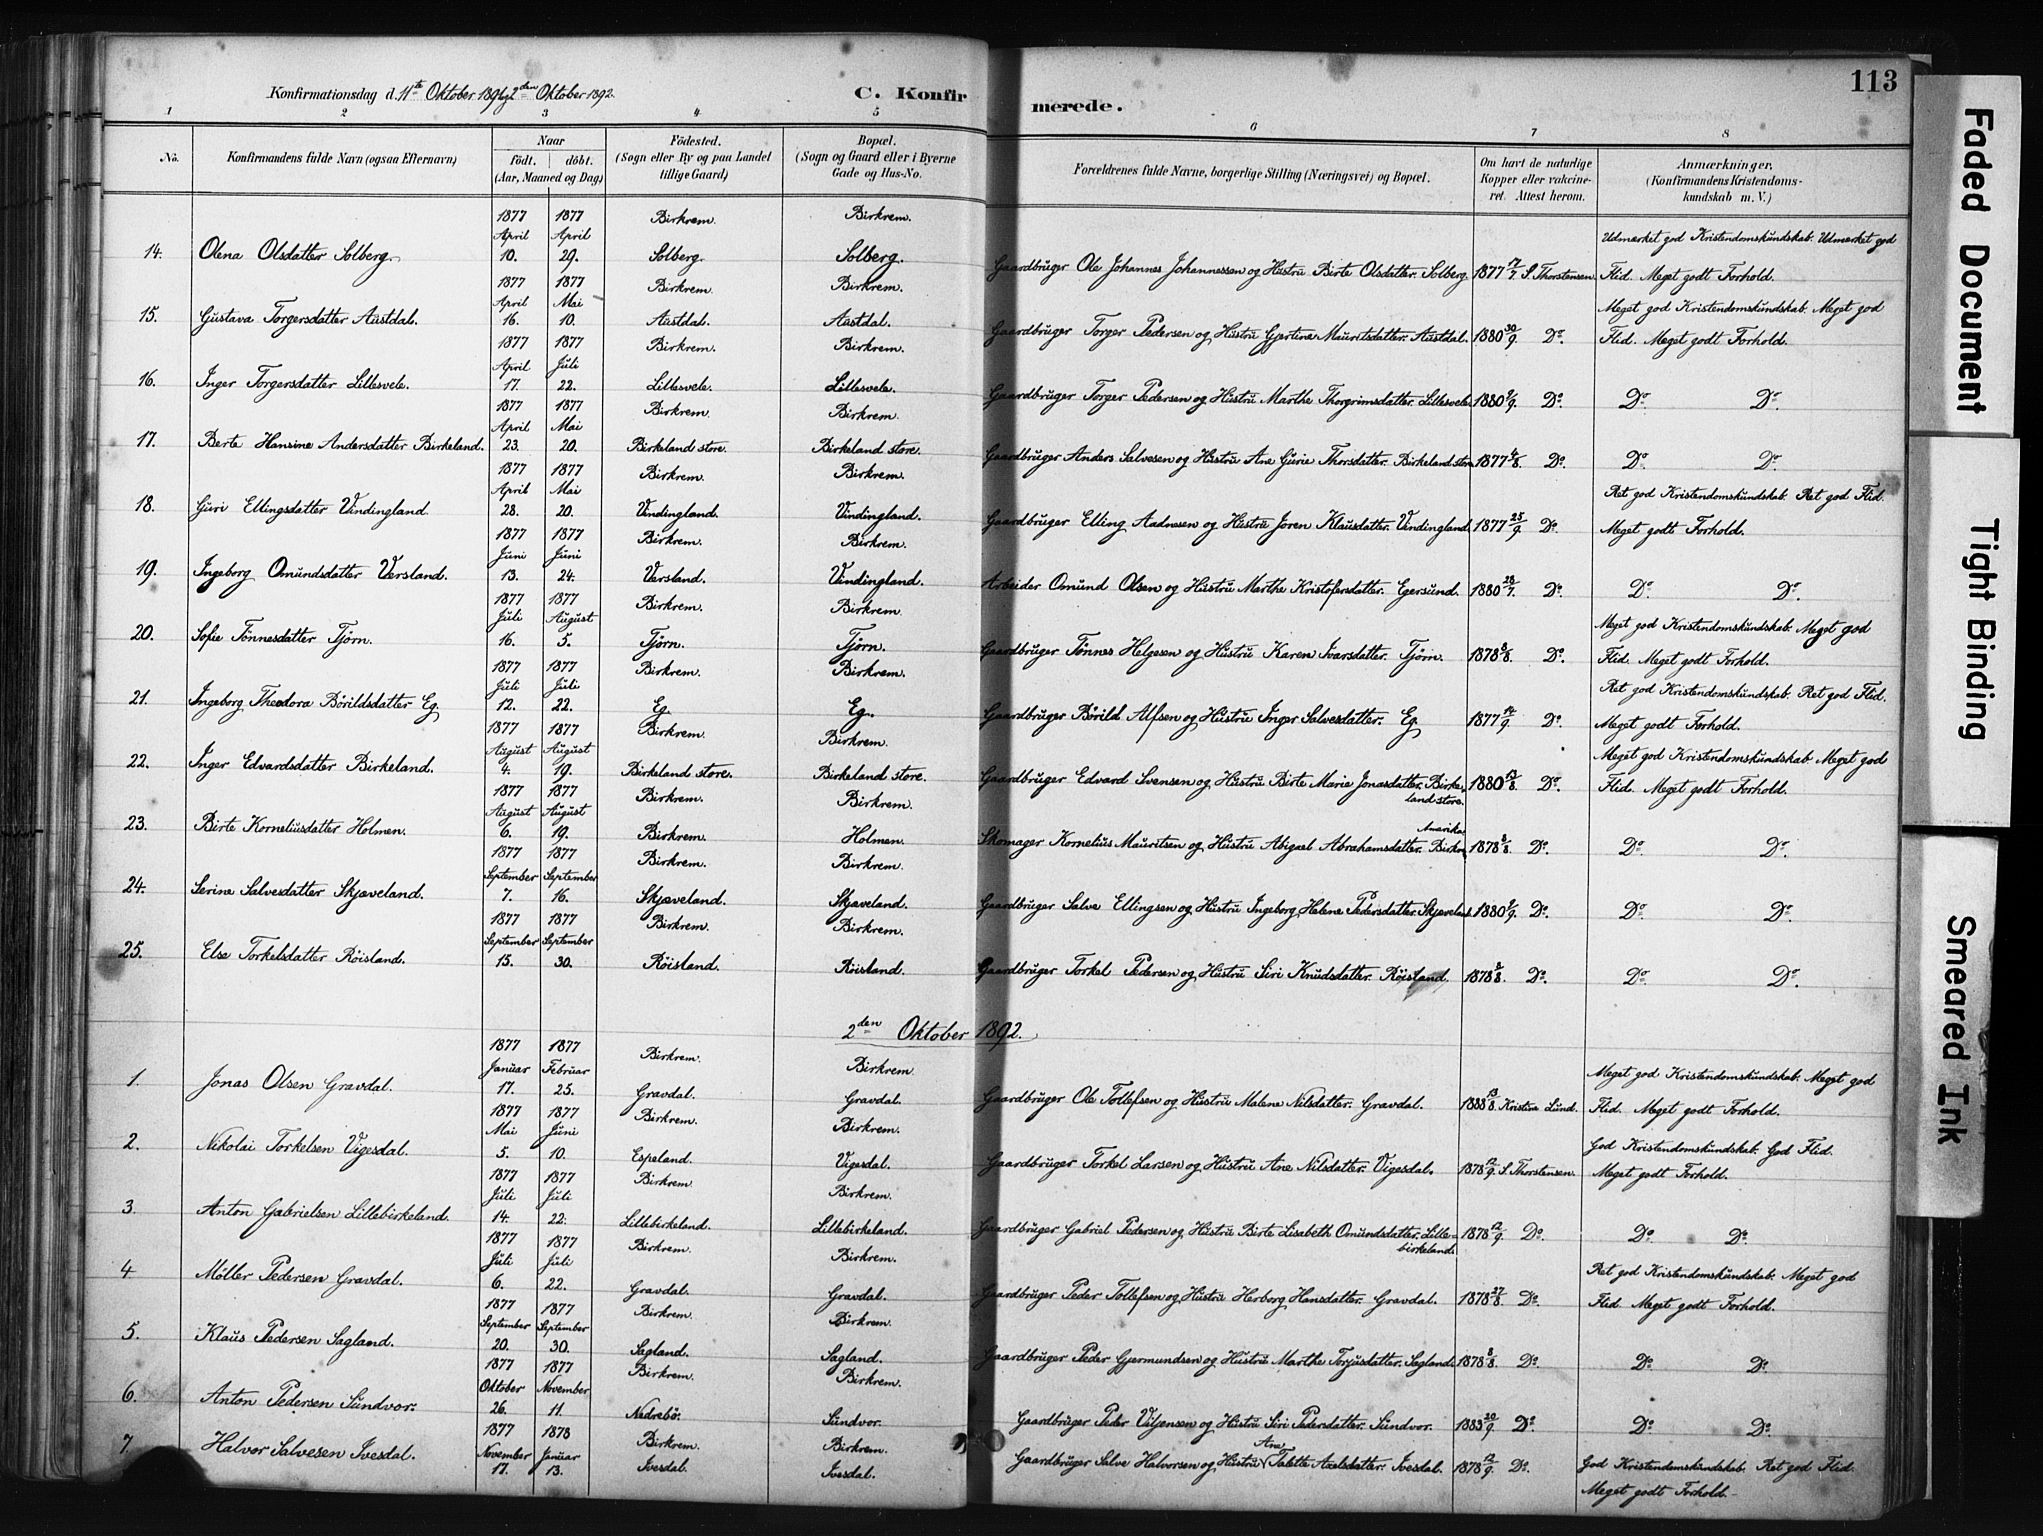 Konfirmationsdag d. 11te Oktober 1891 og 2den Oktober 1892.
C. Konfirmerede.
113
1 2 3 4 5 6 7 8
No. Konfirmandens fulde Navn (ogsaa Efternavn) Naar födt. döbt. (Aar, Maaned og Dag) Födested. (Sogn eller By og paa Landet tillige Gaard) Bopæl. (Sogn og Gaard eller i Byerne Gade og Hus-No. Forældrenes fulde Navne, borgerlige Stilling (Næringsvei) og Bopæl. Om havt de naturlige Kopper eller vakcineret. Attest herom. Anmærkninger, (Konfirmandens Kristendomskundskab m. V.)
14. Olena Olsdatter Solberg. 1877 April 10. 1877 April 29. Birkrem. Solberg. Birkrem. Solberg. Gaardbruger Ole Johannes Johannessen og Hustru Birte Olsdatter. Solberg. 1877 17/7. S. Thorstensen. Udmærket god Kristendomskundskab. Udmærket god Flid. Meget godt Forhold.
15. Gustava Torgersdatter Austdal. 1877 April 16. 1877 Mai 10. Birkrem. Austdal. Birkrem. Austdal. Gaardbruger Torger Pedersen og Hustru Gjertine Mauritsdatter. Austdal. 1880 30/9. Do. Meget god Kristendomskundskab. Meget god Flid. Meget godt Forhold.
16. Inger Torgersdatter Lillesvele. 1877 April 17. 1877 Juli 22. Birkrem. Lillesvele. Birkrem. Lillesvele. Gaardbruger Torger Pedersen og Hustru Marthe Thorgrimsdatter. Lillesvele. 1880 9/9. Do. Do. Do.
17. Berte Hansine Andersdatter Birkeland. 1877 April 23. 1877 Mai 20. Birkrem. Birkeland store. Birkrem. Birkeland store. Gaardbruger Anders Salvesen og Hustru Ane Gurie Thorsdatter. Birkeland store. 1877 4/8. Do. Do. Do.
18. Guri Ellingsdatter Vindingland. 1877 April 28. 1877 Mai 20. Birkrem. Vindingland. Birkrem. Vindingland. Gaardbruger Elling Aadnesen og Hustru Joren Klausdatter. Vindingland. 1877 25/9. Do. Ret god Kristendomskundskab. Ret god Flid. Meget godt Forhold.
19. Ingeborg Omundsdatter Versland. 1877 Juni 13. 1877 Juni 24. Birkrem. Versland. Birkrem. Vindingland. Arbeider Omund Olsen og Hustru Marthe Kristofersdatter. Egersund. 1880 28/7. Do. Do. Do.
20. Sofie Tönnesdatter Tjörn. 1877 Juli 16. 1877 August 5. Birkrem. Tjörn. Birkrem. Tjörn. Gaardbruger Tönnes Helgesen og Hustru Karen Ivarsdatter. Tjörn. 1878 8/8. Do. Meget god Kristendomskundskab. Meget god Flid. Meget godt Forhold.
21. Ingeborg Theodora Börildsdatter Eg. 1877 Juli 12. 1877 Juli 22. Birkrem. Eg. Birkrem. Eg. Gaardbruger Börild Alfsen og Hustru Inger Salvesdatter. Eg. 1877 14/9. Do. Ret god Kristendomskundskab. Ret god Flid. Meget godt Forhold.
22. Inger Edvardsdatter Birkeland. 1877 August 4. 1877 August 19. Birkrem. Birkeland store. Birkrem. Birkeland store. Gaardbruger Edvard Svensen og Hustru Birte Marie Jonasdatter. Birkeland store. 1880 17/8. Do. Meget god Kristendomskundskab. Meget god Flid. Meget godt Forhold.
23. Birte Korneliusdatter Holmen. 1877 August 6. 1877 August 19. Birkrem. Birkrem. Birkrem. Holmen. Skomager Kornelius Mauritsen og Hustru Abigael Abrahamsdatter. Amerika. Birkrem. 1878 8/8. Do. Do. Do.
24. Serine Salvesdatter Skjæveland. 1877 September 7. 1877 September 16. Birkrem. Skjæveland. Birkrem. Skjæveland. Gaardbruger Salve Ellingsen og Hustru Ingeborg Helene Pedersdatter. Skjæveland. 1880 9/9. Do. Do. Do.
25. Else Torkelsdatter Röisland. 1877 September 15. 1877 September 30. Birkrem. Röisland. Birkrem. Röisland. Gaardbruger Torkel Pedersen og Hustru Siri Knudsdatter. Röisland. 1878 8/8. Do. Do. Do.
2den Oktober 1892.
1. Jonas Olsen Gravdal. 1877 Januar 17. 1877 Februar 25. Birkrem. Gravdal. Birkrem. Gravdal. Gaardbruger Ole Tollefsen og Hustru Malene Nilsdatter. Gravdal. 1888 13/8. Kristine Lund. Meget god Kristendomskundskab. Meget god Flid. Meget godt Forhold.
2. Nikolai Torkelsen Vigesdal. 1877 Mai 5. 1877 Juni 10. Birkrem. Espeland. Birkrem. Vigesdal. Gaardbruger Torkel Larsen og Hustru Ane Nilsdatter. Vigesdal. 1878 12/9. S. Thorstensen. God Kristendomskundskab. God Flid. Meget godt Forhold.
3. Anton Gabrielsen Lillebirkeland. 1877 Juli 14. 1877 Juli 22. Birkrem. Lillebirkeland. Birkrem. Lillebirkeland. Gaardbruger Gabriel Pedersen og Hustru Birte Lisabeth Omundsdatter. Lillebirkeland. 1878 12/9. Do. Do. Do.
4 Möller Pedersen Gravdal. 1877 Juli 6. 1877 Juli 22. Birkrem. Gravdal. Birkrem. Gravdal. Gaardbruger Peder Tollefsen og Hustru Herborg Hansdatter. Gravdal. 1878 27/8. Do. Ret god Kristendomskundskab. Meget god Flid. Meget godt Forhold.
5. Klaus Pedersen Sagland. 1877 September 20. 1877 September 30. Birkrem. Sagland. Birkrem. Sagland. Gaardbruger Peder Gjermundsen og Hustru Marthe Torjusdatter. Sagland. 1878 8/8. Do. Do. Do.
6. Anton Pedersen Sundvor. 1877 Oktober 26. 1877 November 11. Birkrem. Nedrebö. Birkrem. Sundvor. Gaardbruger Peder Viljensen og Hustru Siri Pedersdatter. Sundvor. 1883 20/9. Do. Do. Do.
7. Halvor Salvesen Ivesdal. 1877 November 17. 1878 Januar 13. Birkrem. Ivesdal. Birkrem. Ivesdal. Gaardbruger Salve Halvorsen og Hustru Ane Talette Axelsdatter. Ivesdal. 1878 12/9. Do. God Kristendomskundskab. Ret god Flid. Meget godt Forhold.
Faded Document
Tight Binding
Smeared Ink